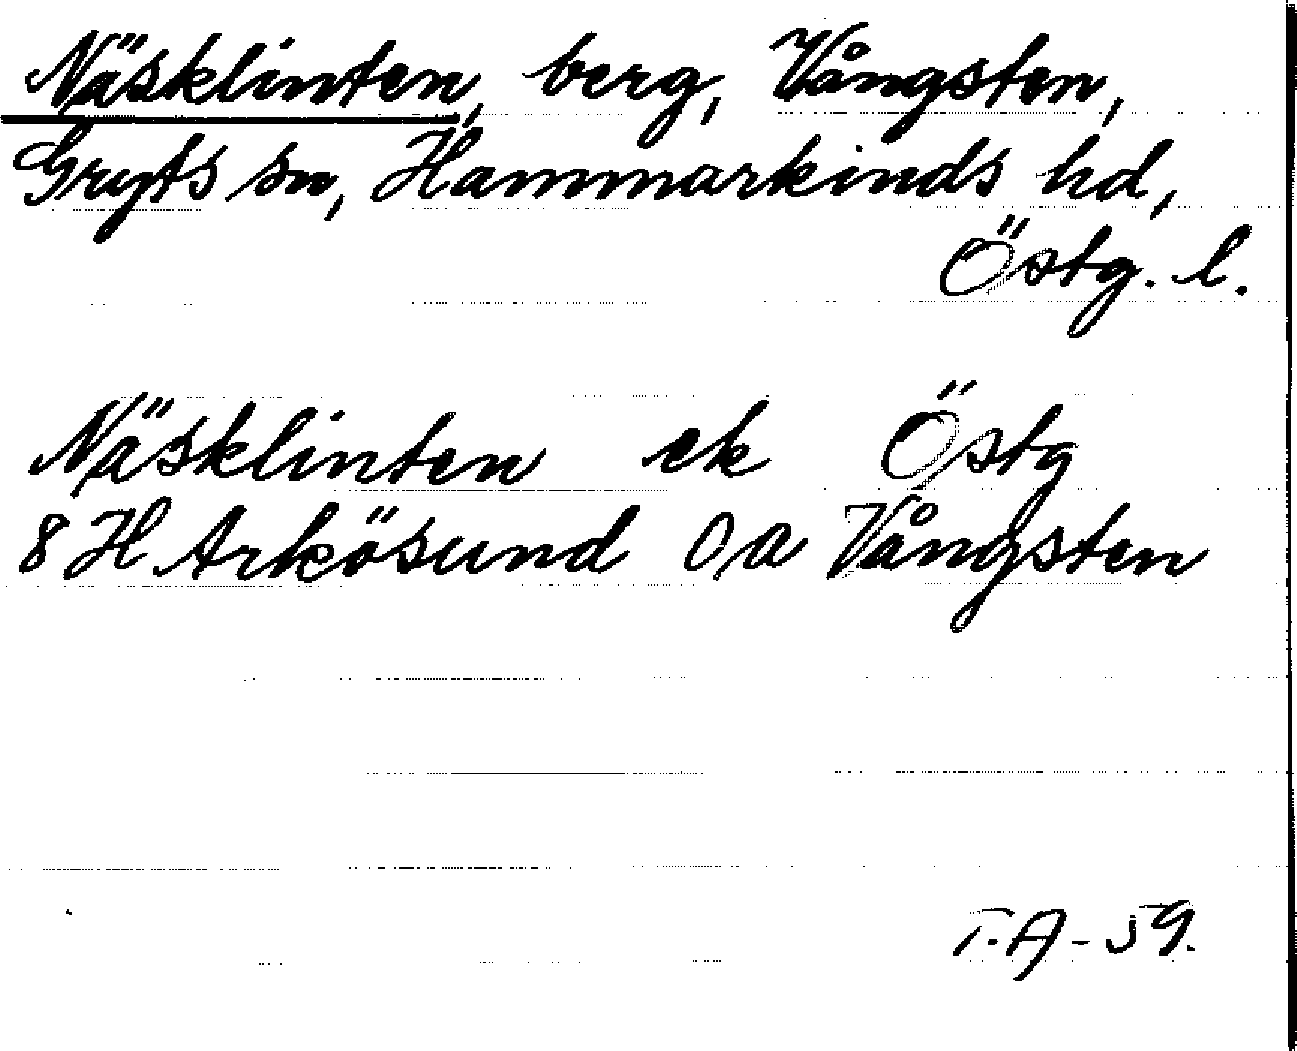 Näsklinten, berg, Vångsten,
Gryts sn, Hammarkinds hd,
Östg. l.
Näsklinten ek Östg
8 H Arkösund O,a Vångsten
T.A-59.